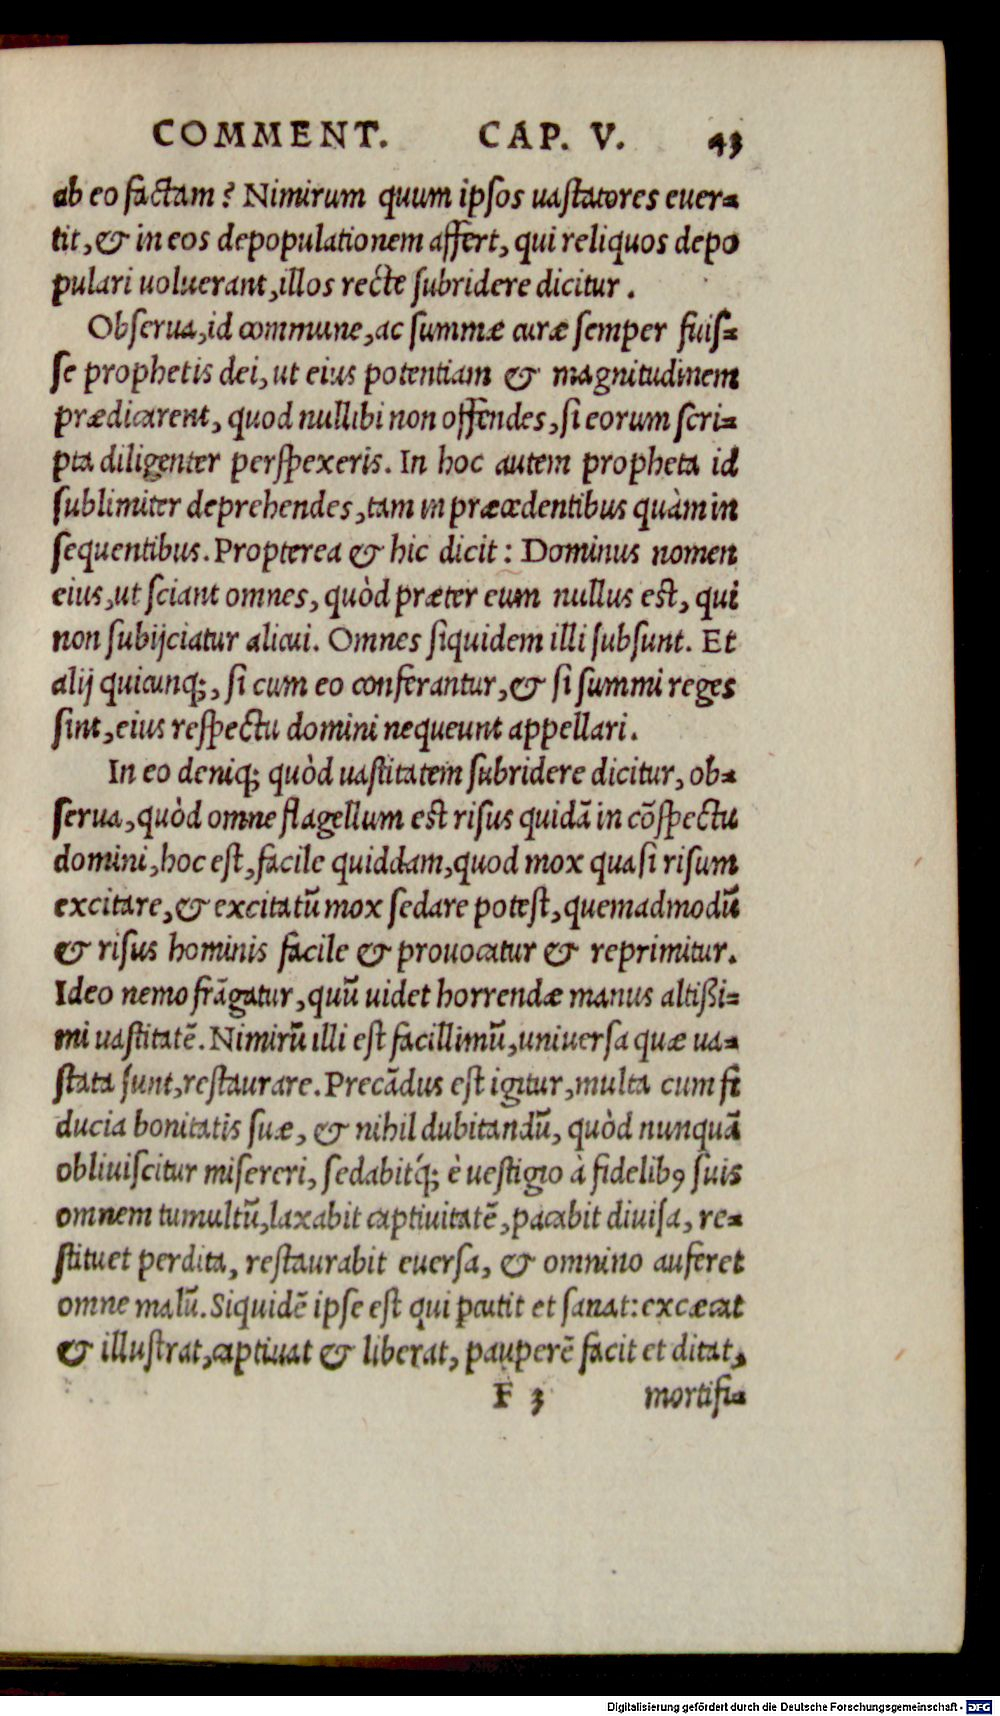 COMMENT. CAP. V. 43
ab eo factam? Nimirum quum ipsos uastatores euer-
tit, & in eos depopulationem affert, qui reliquos depo
pulari uoluerant, illos recte subridere dicitur.
Obserua, id commune, ac summæ curæ semper fuis-
se prophetis dei, ut eius potentiam & magnitudinem
prædicarent, quod nullibi non offendes, si eorum scri-
pta diligenter perspexeris. In hoc autem propheta id
sublimiter deprehendes, tam in præcedentibus quàm in
sequentibus. Propterea & hic dicit: Dominus nomen
eius, ut sciant omnes, quòd præter eum nullus est, qui
non subijciatur alicui. Omnes siquidem illi subsunt. Et
alij quicunq;, si cum eo conferantur, & si summi reges
sint, eius respectu domini nequeunt appellari.
In eo deniq; quòd uastitatem subridere dicitur, ob-
serua, quòd omne flagellum est risus quidã in cõspectu
domini, hoc est, facile quiddam, quod mox quasi risum
excitare, & excitatũ mox sedare potest, quemadmodũ
& risus hominis facile & prouocatur & reprimitur.
Ideo nemo frãgatur, quũ uidet horrendæ manus altißi-
mi uastitatẽ. Nimirũ illi est facillimũ, uniuersa quæ ua-
stata sunt, restaurare. Precãdus est igitur, multa cum fi
ducia bonitatis suæ, & nihil dubitandũ, quòd nunquã
obliuiscitur misereri, sedabitq́; è uestigio à fidelibꝰ suis
omnem tumultũ, laxabit captiuitatẽ, pacabit diuisa, re-
stituet perdita, restaurabit euersa, & omnino auferet
omne malũ. Siquidẽ ipse est qui ꝑcutit et sanat: excæcat
& illustrat, captiuat & liberat, pauperẽ facit et ditat,
F 3 mortifi-
Digitalisierung gefördert durch die Deutsche Forschungsgemeinschaft - DFG